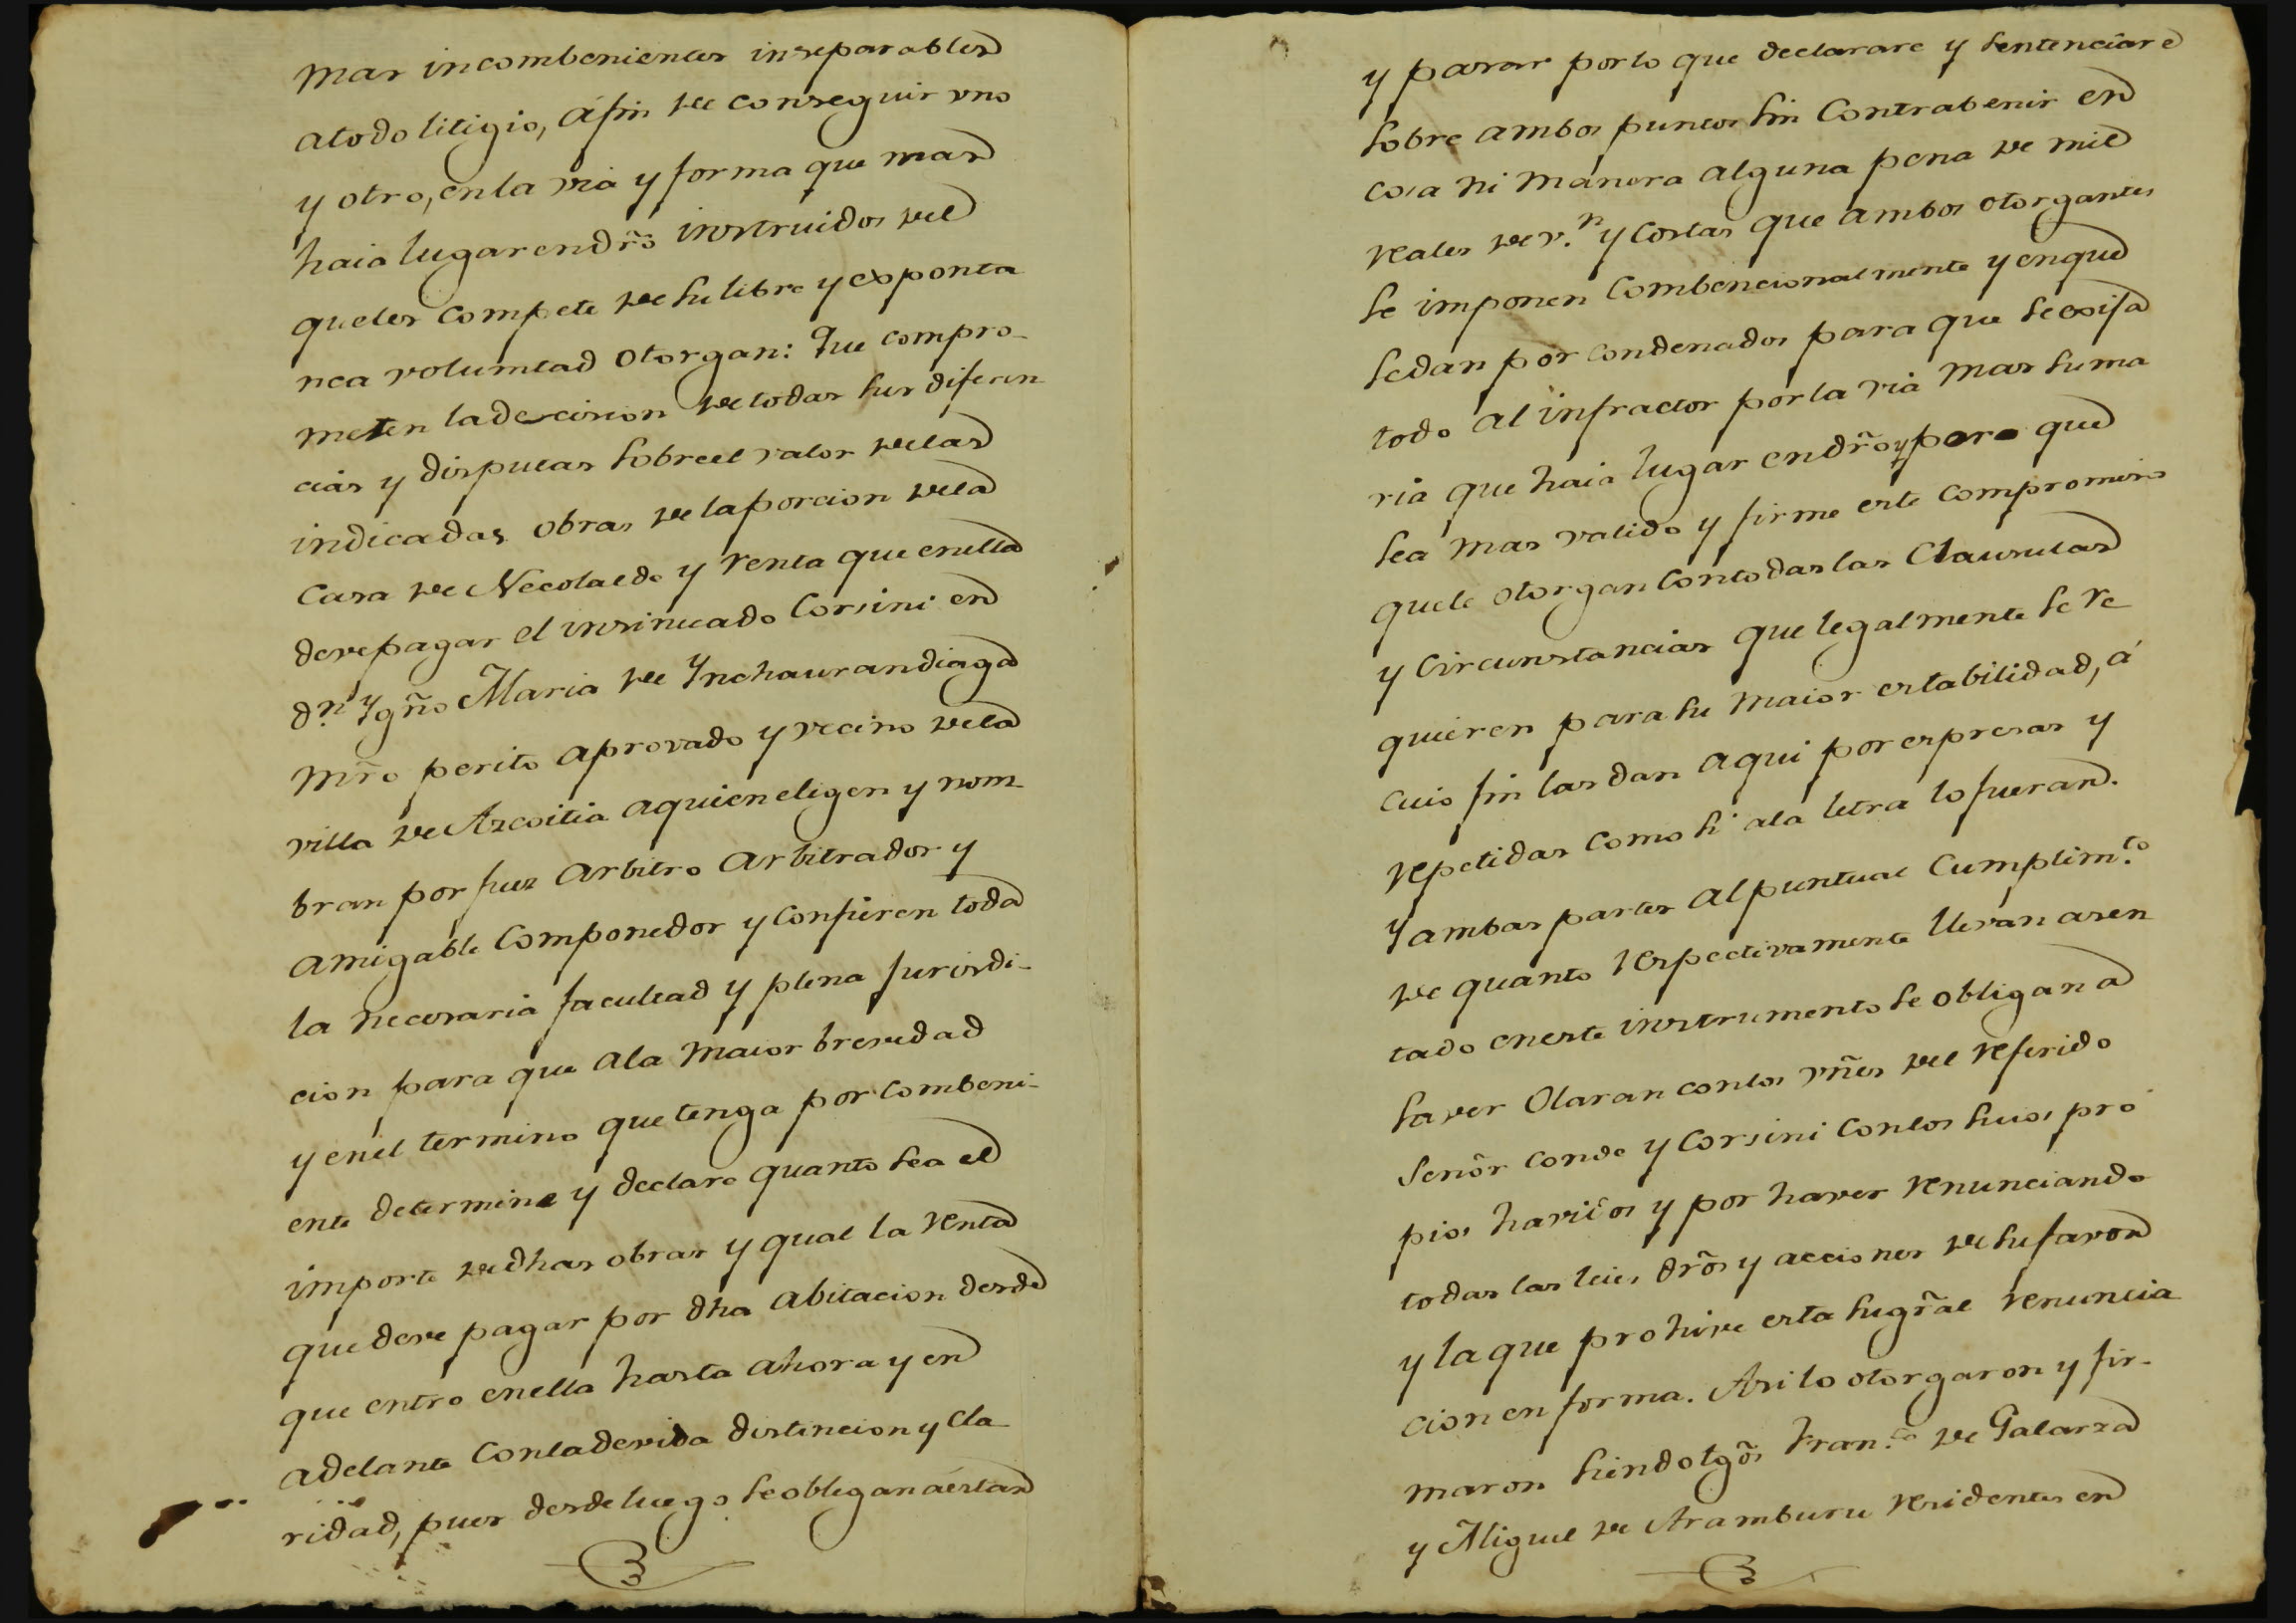 mas incombenientes inseparables
atodo litigio, áfin de conseguir uno
y otro, enla via y forma que mas
haia lugar endr̃o instruidos del
queles compete de su libre y exponta
nea volumtad otorgan: Que compro-
meten la decision de todas sus diferen
cias y disputas sobreel valor delas
indicadas obras de laporcion dela
Casa de Necolalde y renta que enella
devepagar el insinuado Corsini en
d.n Ygñ.o Maria de Ynchaurandiaga
Mr̃o perito aprovado y vecino dela
villa de Azcoitia aquien eligen y nom-
bran por Juez Arbitro Arbitrador y
Amigable Componedor y Confieren toda
la necesaria facultad y plena Jurisdi-
cion para que ala maior brevedad
y enel termino que tenga por Combeni-
ente determine y declare quanto sea el
importe dedhas obras y qual la renta
que deve pagar por dha Abitacion desde
que entro enella hasta ahora y en
adelante Conladevida distincion y cla
ridad, pues desdeluego se obligan aéstar
y pasar porlo que declarare y sentenciare
sobre ambos puntos sin Contrabenir en
cosa ni manera alguna pena de mil
reales de v.n y Costas que ambos otorgantes
se imponen Combencionalmente y enque
sedan por condenados para que se exija
todo al infractor porla via mas suma
ria que haia lugar endr̃o y para que
sea mas valido y firme este compromiso
quele otorgan Contodas las Clausulas
y Circunstancias que legalmente se re
quieren para su maior estabilidad, á
cuio fin las dan aqui por espresas y
repetidas como si ala letra lo fueran.
Y ambas partes Alpuntual Cumplim.to
de quanto respectivamente llevan asen
tado eneste instrumento se obligan a
saver Olaran conlos vñes del referido
Señor Conde y Corsini Conlos suios pro
pios havidos y por haver renunciando
todas las leies dr̃os y acciones de su favor
y la que prohive esta sugr̃al renuncia
cion en forma. Asi lo otorgaron y fir-
maron siendo tgõs Fran.co de Galarza
y Miguel de Aramburu residentes en